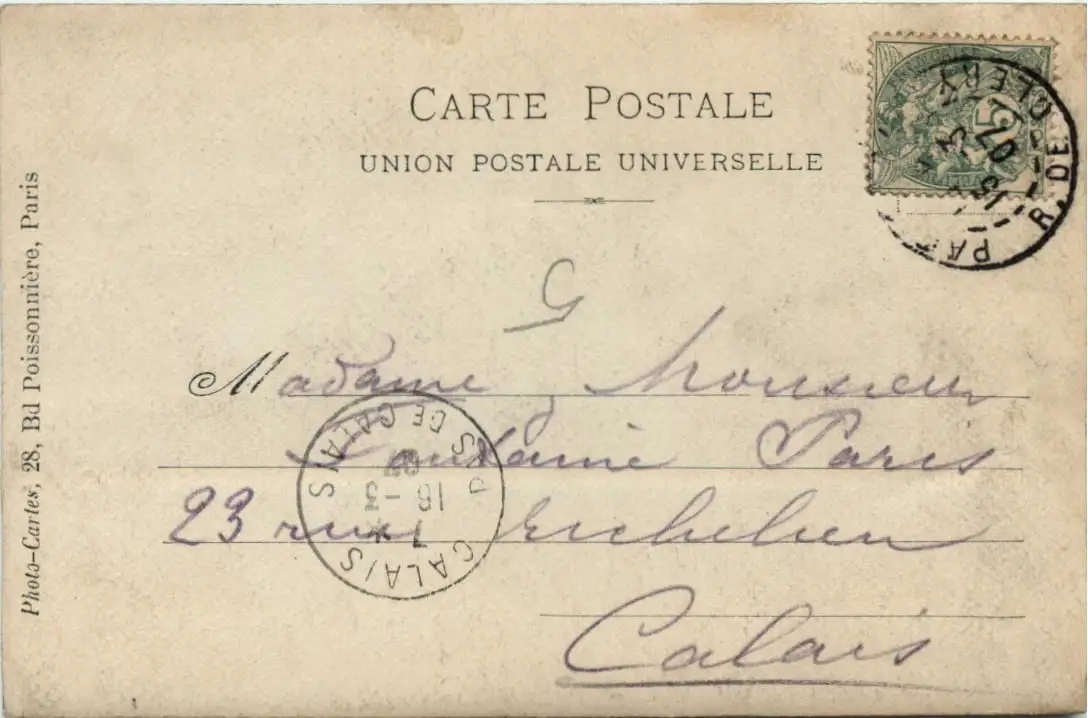 CARTE POSTALE
UNION POSTALE UNIVERSELLE
Photo-Cartes, 28, Bd Poissonnière, Paris
5
R. DE CLERY
15
3
07
G
Madame Monsieur
Paris
23 rue richelieu
Calais
CALAIS
PAS DE CALAIS
7
16 - 3
07